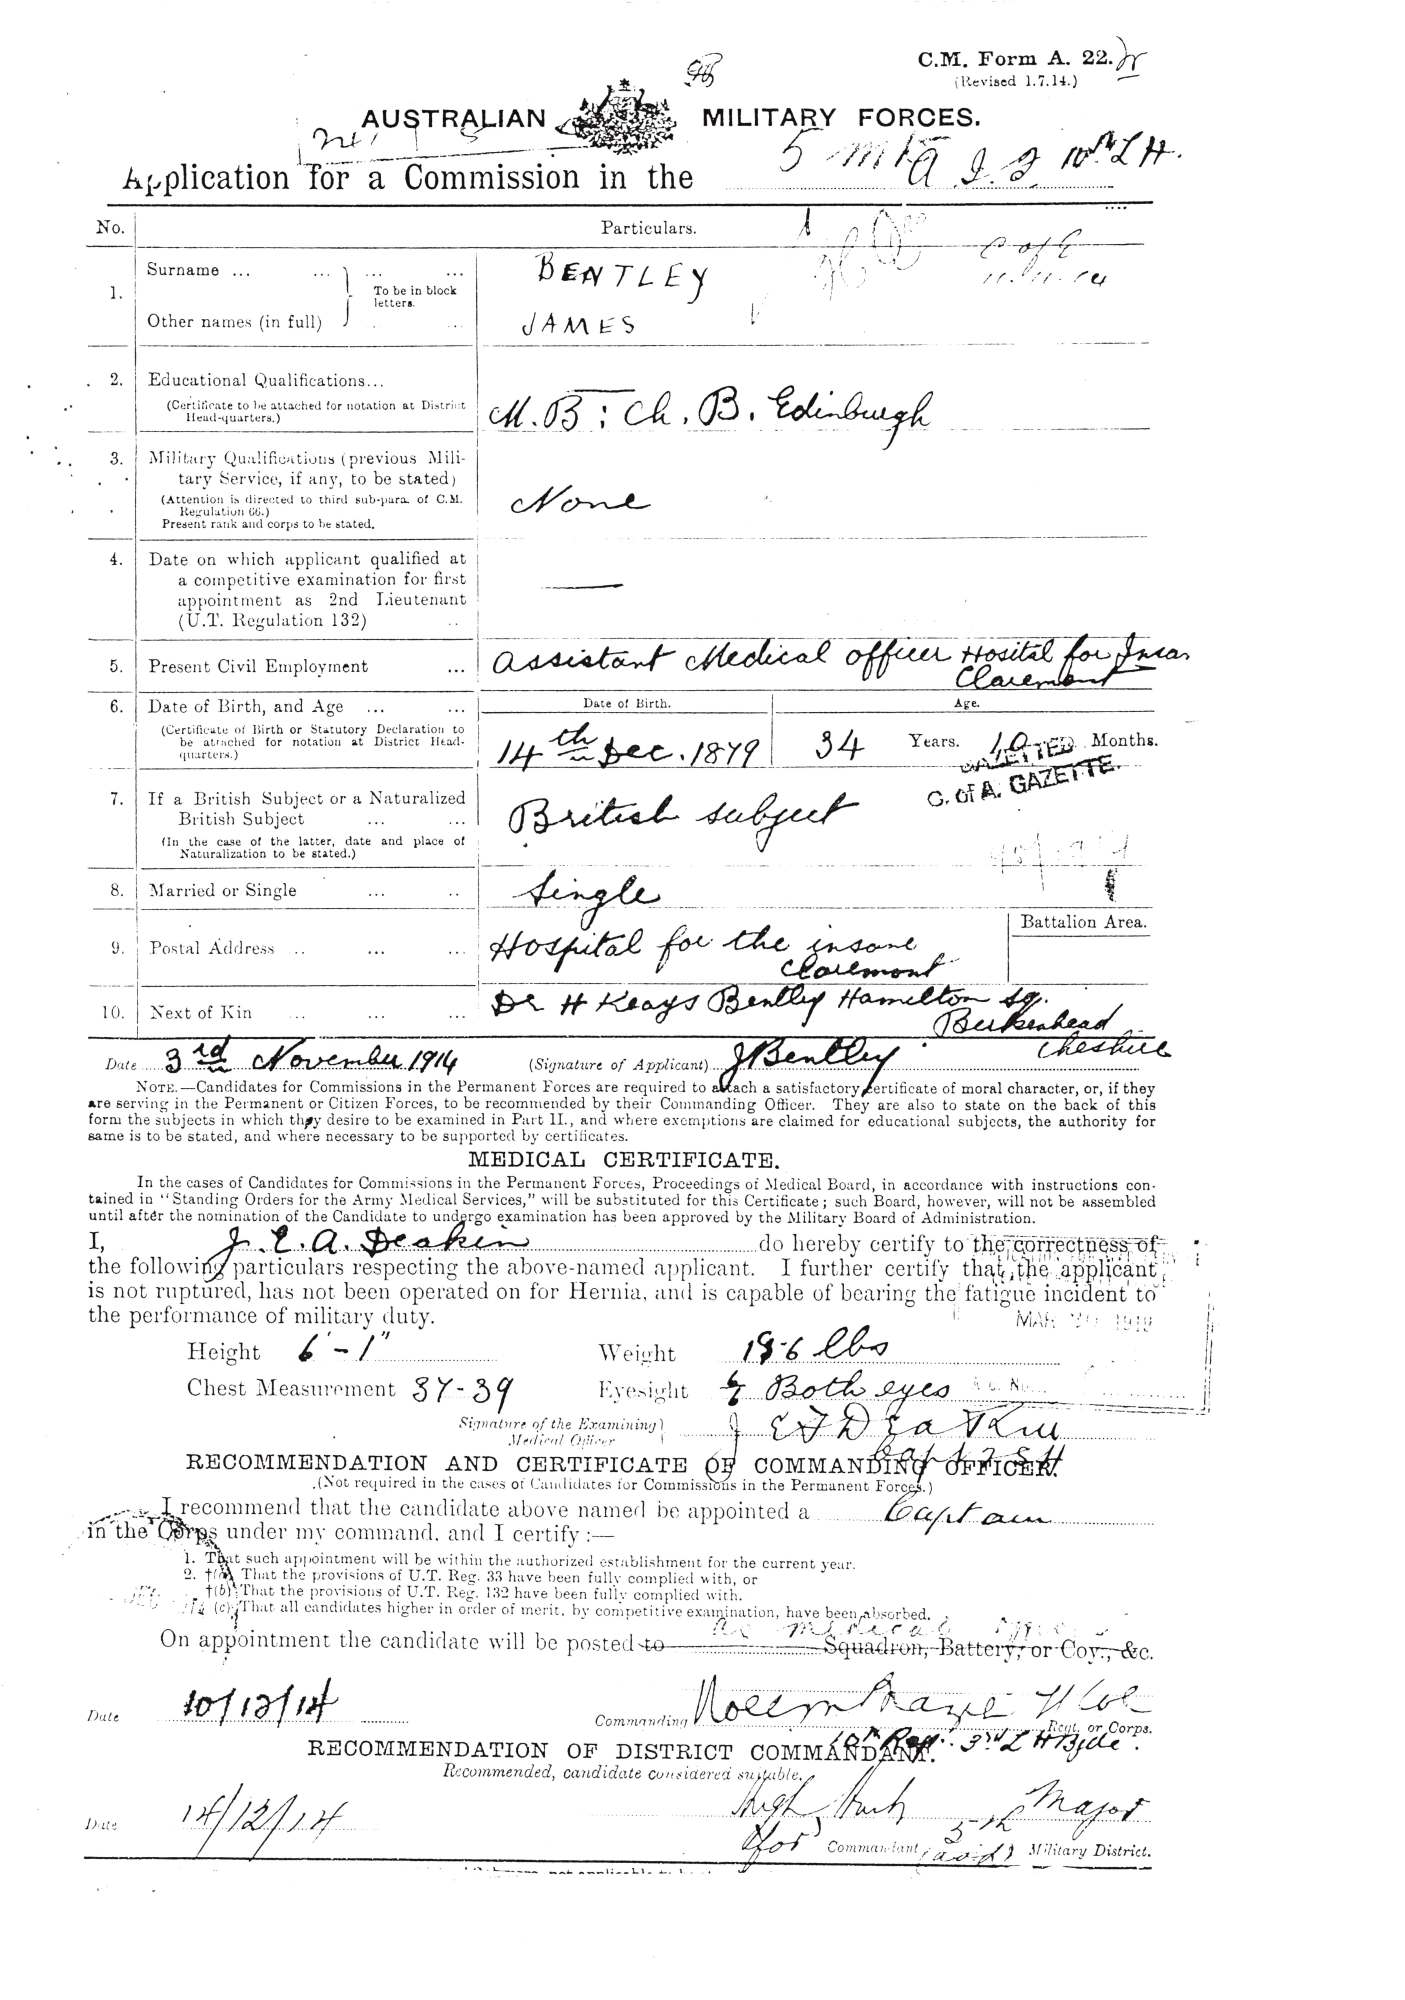 C.M. Form A. 22.
(Revised 1.7.14.)
AUSTRALIAN MILITARY FORCES.
Application for a Commission in the A.I.F. 10th L H.
No. Particulars.
C of E
11.11.14
1. Surname ... ... ... ...
To be in block letters.
Other names (in full)
BENTLEY
JAMES
2. Educational Qualifications...
(Certificate to be attached for notation at District
Head-quarters.)
M.B: Ch. B. Edinburgh
3. Military Qualifications (previous Mili-
tary Service, if any, to be stated)
(Attention is directed to third sub-para. of C.M.
Regulation 66.)
Present rank and corps to be stated.
None
4. Date on which applicant qualified at
a competitive examination for first
appointment as 2nd Lieutenant
(U.T. Regulation 132) ..
5. Present Civil Employment ...
Assistant Medical officer Hosital for Insan
Claremont
6. Date of Birth, and Age ... ...
(Certificate of Birth or Statutory Declaration to
be attached for notation at District Head-
quarters.)
Date of Birth. Age.
14th Dec. 1879 34 Years. 10 Months.
GAZETTED
C. of A. GAZETTE.
7. If a British Subject or a Naturalized
British Subject ... ...
(In the case of the latter, date and place of
Naturalization to be stated.)
British subject
8. Married or Single ... ..
Single
9. Postal Address .. ... ...
Hospital for the insane
Claremont
Battalion Area.
10. Next of Kin ... ... ...
Dr H Keays Bentley Hamilton Sq.
Birkenhead
Cheshire
Date 3rd November 1914 (Signature of Applicant) J Bentley
NOTE.—Candidates for Commissions in the Permanent Forces are required to attach a satisfactory certificate of moral character, or, if they
are serving in the Permanent or Citizen Forces, to be recommended by their Commanding Officer. They are also to state on the back of this
form the subjects in which they desire to be examined in Part II., and where exemptions are claimed for educational subjects, the authority for
same is to be stated, and where necessary to be supported by certificates.
MEDICAL CERTIFICATE.
In the cases of Candidates for Commissions in the Permanent Forces, Proceedings of Medical Board, in accordance with instructions con-
tained in "Standing Orders for the Army Medical Services," will be substituted for this Certificate; such Board, however, will not be assembled
until after the nomination of the Candidate to undergo examination has been approved by the Military Board of Administration.
I, J. E. A. Deakin do hereby certify to the correctness of
the following particulars respecting the above-named applicant. I further certify that the applicant
is not ruptured, has not been operated on for Hernia, and is capable of bearing the fatigue incident to
the performance of military duty.
Height 6' - 1" Weight 186 lbs
Chest Measurement 37-39 Eyesight 6/6 Both eyes
Signature of the Examining
Medical Officer
RECOMMENDATION AND CERTIFICATE OF COMMANDING OFFICER.
(Not required in the cases of Candidates for Commissions in the Permanent Forces.)
I recommend that the candidate above named be appointed a Captain
in the Corps under my command, and I certify :—
1. That such appointment will be within the authorized establishment for the current year.
2. †(a) That the provisions of U.T. Reg. 33 have been fully complied with, or
†(b) That the provisions of U.T. Reg. 132 have been fully complied with.
(c) That all candidates higher in order of merit, by competitive examination, have been absorbed.
as medical officer
On appointment the candidate will be posted to Squadron, Battery, or Coy., &c.
Date 10/12/14 Commanding Regt. or Corps.
10th Regt. 3rd L H Bgde.
RECOMMENDATION OF DISTRICT COMMANDANT.
Recommended, candidate considered suitable.
Major
Date 14/12/14
(for) Commandant 5th Military District.